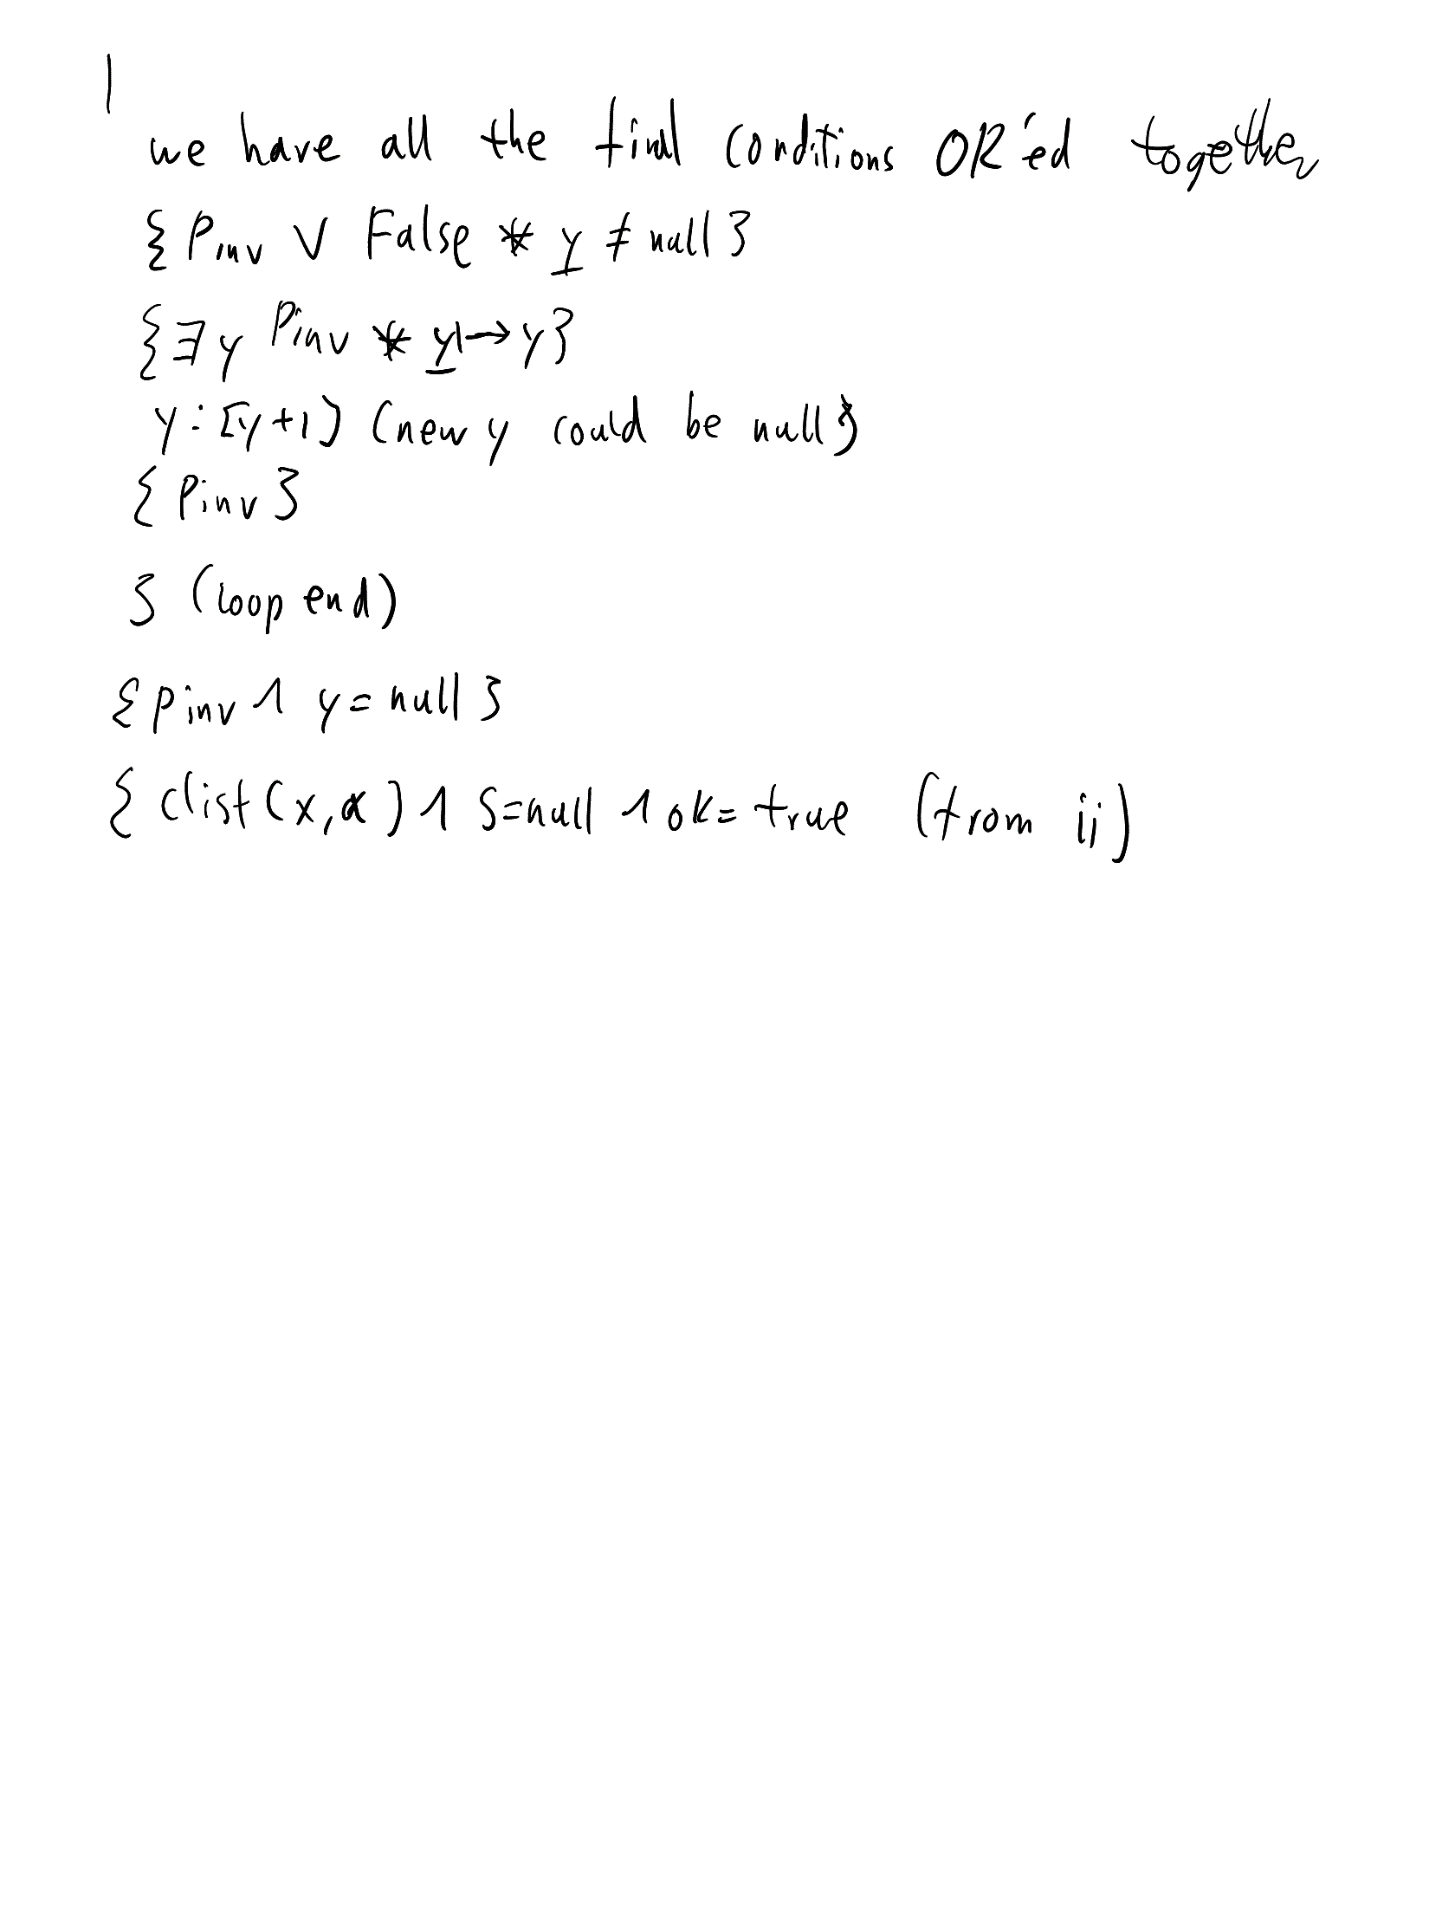 we have all the final conditions OR'ed together
{ Pinv ∨ False * y ≠ null }
{ ∃ y Pinv * y ↦ y }
y : [y+1] (new y could be null)
{ Pinv }
} (loop end)
{ pinv ∧ y = null }
{ clist (x, α) ∧ S = null ∧ ok = true (from ii)